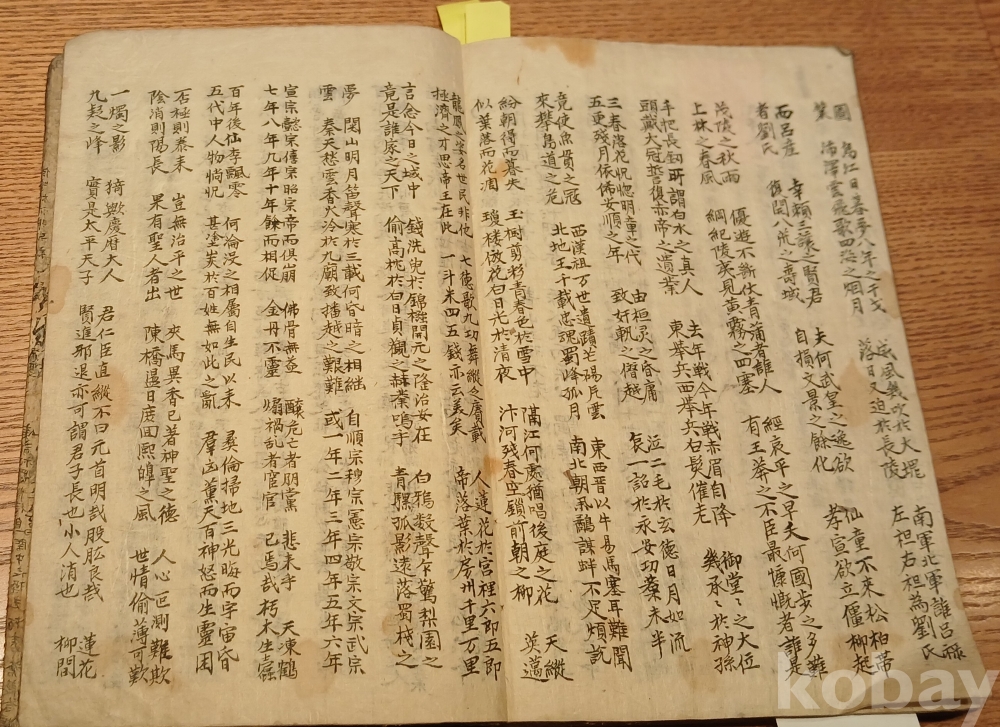 圖 烏江日暮夢八年之干戈 威風幾吹於大堤 南軍北軍誰呂祿
業 沛澤雲飛歌四海之烟月 落日又迫於長陵 左袒右袒為劉氏
而呂産 幸頼三讓之賢君 夫何武皇之逸欲 仙童不來松柏帶
者劉氏 復閏八荒之壽域 自損文景之餘化 孝宣欲立僵柳起
茂陵之秋雨 優遊不斷伏青蒲者誰人 經哀平之早夭何國步之多難
上林之春風 綱紀陵夷見黄霧之四塞 有王莽之不臣最慷慨者誰是
手把長釖所謂白水之真人 去年戰今年戰赤眉自降 御堂々之大位
頭戴大冠誓復赤帝之遺業 東擧兵西擧兵白髮催老 幾承々於神孫
三春落花怳惚明章之代 由桓灵之昏庸 泣二毛於玄德日月如流
五更殘月依俙安順之年 致奸軌之僣越 哀一詔於永安功業未半
竟使魚貫之冠 西漢祖万世遺躅芒碭片雲 東西晉以牛易馬塞耳難聞
來攀鳥道之危 北地王千載忠魂蜀峰孤月 南北朝鷸謀蚌不足煩說
紛朝得而暮失 玉樹剪彩青春色於雪中 隔江何處猶唱後庭之花 天縱
似葉落而花凋 瓊楼倣花白日光於清夜 汴河残春空鎖前朝之柳 英邁
龍鳳之姿名世民非他 七德歌九功舞縱之賡載 人蓮花於宮裡六郎五郎
拯濟之才思帝王在此 一斗米四五錢亦云美矣 帝落葉於房州千里万里
言念今日之域中 錢洗兒於錦襁開元之治安在 白鴉數聲乍驚梨園之
竟是誰家之天下 偷高枕於白日貞觀之赫業嗚乎 青騾孤影遠落蜀棧之
夢 関山明月笛聲寒於三何昏暗之相継 自順宗穆宗憲宗敬宗文宗武宗
雲 秦天愁雲香火冷於九廟致播越之艱難 或一年二年三年四年五年六年
宣宗懿宗僖宗昭宗帝而俱崩 佛骨無益 釀危亡者朋黨 悲来乎 天凍鶴
七年八年九年十年餘而相促 金丹不靈 煽禍乱者宦官 已焉哉 朽木生
百年後仙李飄零 何淪没之相属自生民以来 彛倫掃地三光晦而宇宙昏
五代中人物惝怳 甚塗炭於百姓無如此之亂 羣凶薫天百神怒而生靈困
否極則泰来 豈無治平之世 夾馬異香已著神聖之德 人心叵測難欺
陰消則陽長 果有聖人者出 陳橋日庶回熙皥之風 世情偷薄可歎
一燭之影 猗歟慶暦大人 君仁臣直縱不曰元首明哉股肱良哉 蓮花
九疑之峰 實是太平天子 賢進邪退亦可謂君子長也小人消也 柳間
kobay